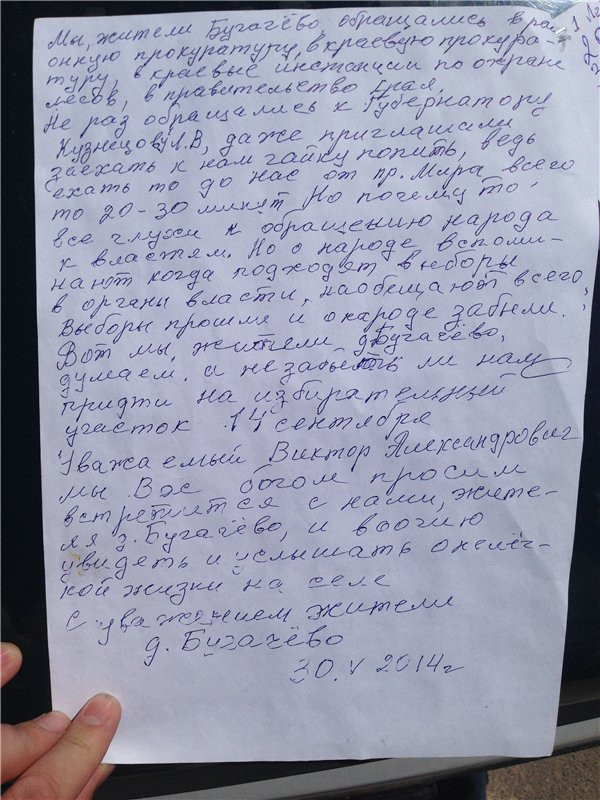 Мы, жители Бугачёво, обращались в рай
онную прокуратуру, в краевую прокура-
туру, в краевые инстанции по охране
лесов, в правительство Края.
Не раз обращались к Губернатору
Кузнецову Л.В, даже приглашали
заехать к нам чайку попить, ведь
ехать то до нас от пр. Мира всего
то 20-30 минут. Но почему то
все глухи к обращению народа
к властям. Но о народе вспоми-
нают когда подходят выборы
в органы власти, наобещают всего,
Выборы прошли и о народе забыли.
Вот мы, жители д Бугачёво,
думаем, а не забыть ли нам
придти на избирательный
участок 14 сентября
Уважаемый Виктор Александрович
мы Вас богом просим
встретится с нами, жите-
ля д. Бугачёво, и воочию
увидеть и услышать о нелёг-
кой жизни на селе
с уважением жители
д. Бугачёво
30.V 2014г